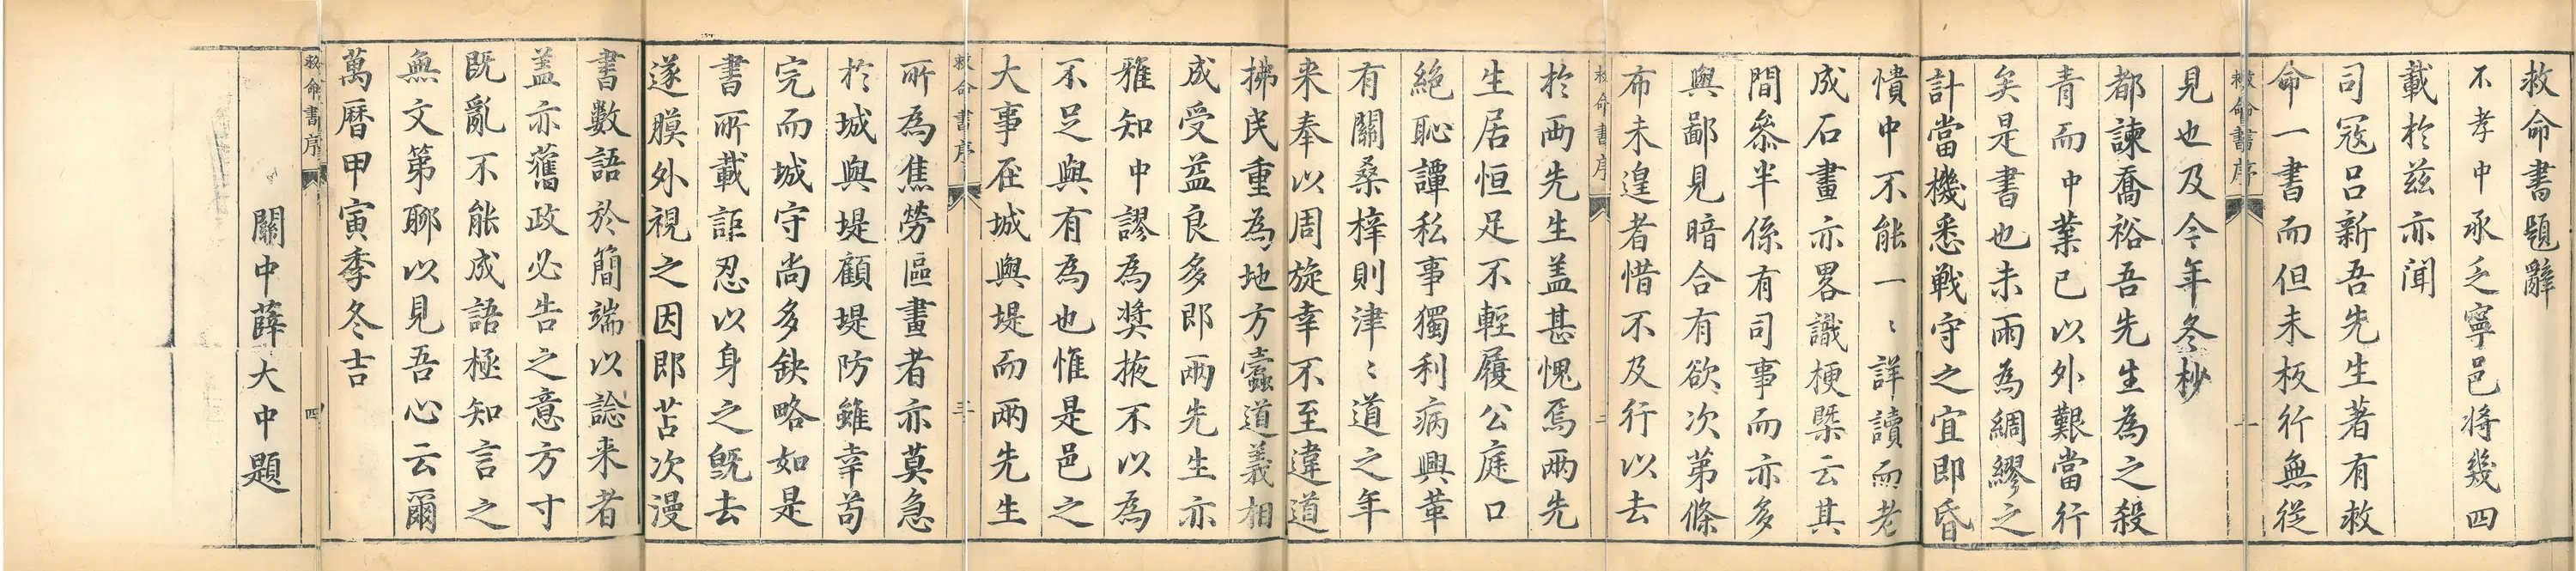 救命書題辭
不孝中承乏寧邑將幾四
載於兹亦聞
司寇呂新吾先生著有救
命一書而但未板行無從
救命書序
一
見也及今年冬杪
都諫喬裕吾先生為之殺
青而中業已以外艱當行
矣是書也未雨為綢繆之
計當機悉戰守之宜即昏
憒中不能一〻詳讀而老
成石畫亦畧識梗槩云其
間叅半係有司事而亦多
與鄙見暗合有欲次第條
布未遑者惜不及行以去
救命書序
二
於兩先生盖甚愧焉兩先
生居恒足不輕履公庭口
絕恥譚私事獨利病興革
有關桑梓則津〻道之年
来奉以周旋幸不至違道
拂民重為地方蠹道義相
成受益良多即兩先生亦
雅知中謬為奬掖不以為
不足與有為也惟是邑之
大事在城與堤而兩先生
救命書序
三
所為焦勞區畫者亦莫急
於城與堤顧堤防雖幸苟
完而城守尚多缺略如是
書所載詎忍以身之旣去
遂膜外視之因即苫次漫
書數語於簡端以諗来者
盖亦舊政必告之意方寸
既亂不能成語極知言之
無文第聊以見吾心云爾
萬曆甲寅季冬吉
救命書序
四
關中薛大中題